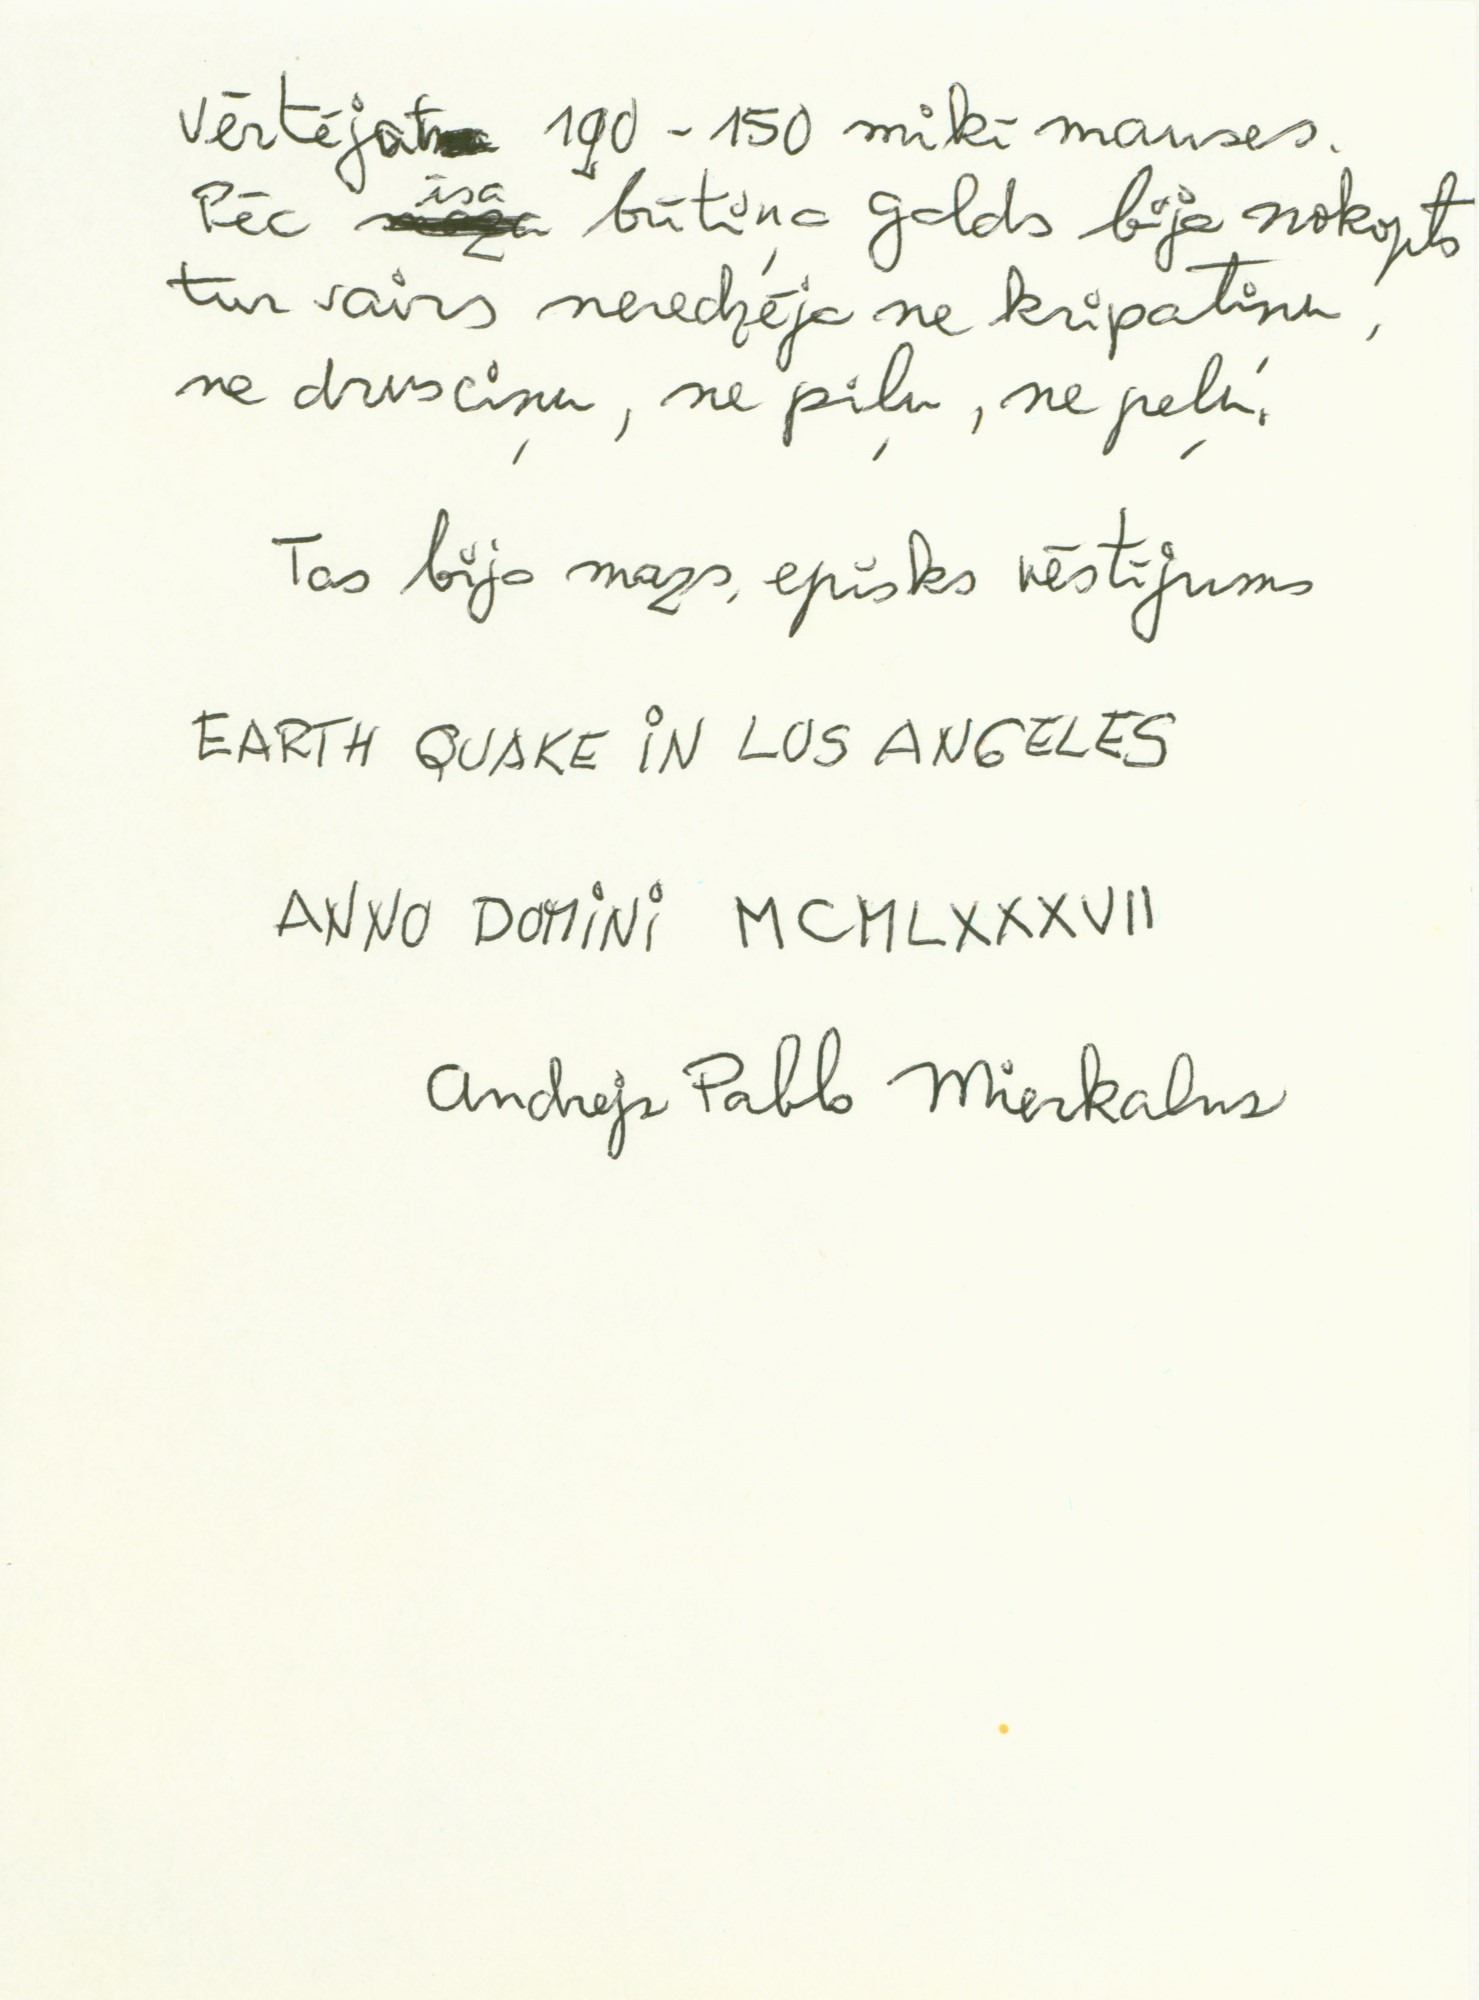 vērtējot 190 - 150 mikī mauses.
Pēc īsa būtiņa galds bija nokopts
tur vairs neredzēja ne kripatiņu,
ne drusciņu, ne pīļu, ne peļu.
Tas bija mazs, epīsks vēstījums
EARTH QUAKE iN LOS ANGELES
ANNO DOMiNi MCMLXXXVII
Andrejs Pablo Mierkalns